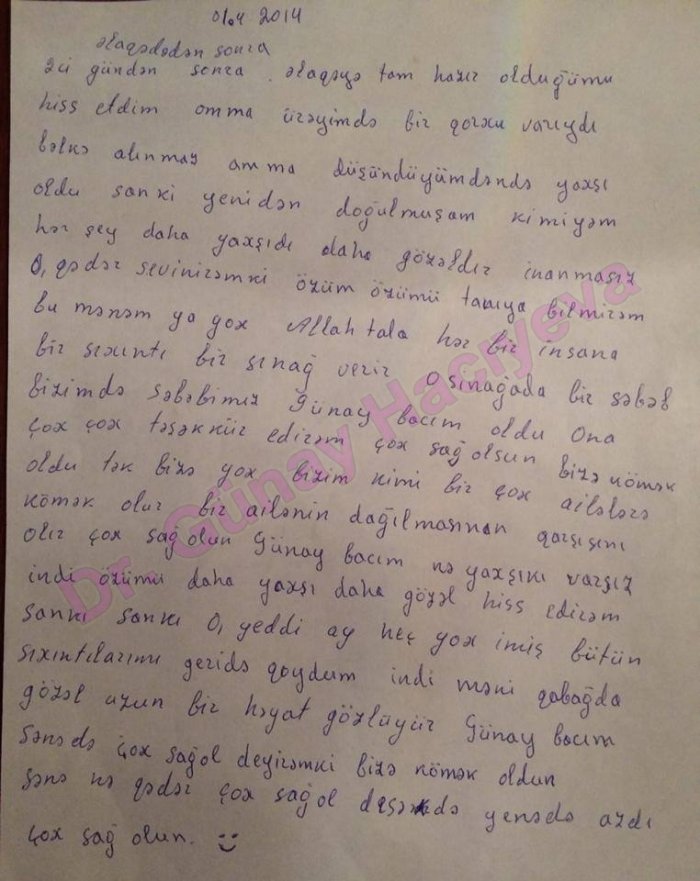 01.4 2014
əlaqədədən sonra
2ci gündən sonra. əlaqəyə tam hazır olduğumu
hiss etdim omma ürəyimdə bir qorxu varıydı
bəlkə alınmaz amma düşündüyümdəndə yaxşı
oldu sanki yenidən doğulmuşam kimiyəm
hər şey daha yaxşıdı daha gözəldir inanmasız
O, qədər sevinirəmki özüm özümü tanıya bilmirəm
bu mənəm ya yox Allah tala hər bir insana
bir sıxıntı bir sınağ verir O sınağada bir səbəb
bizimdə səbəbimiz Günay bacım oldu Ona
çox çox təşəkkür edirəm çox sağ olsun bizə kömək
oldu tək bizə yox bizim kimi bir çox ailələrə
kömək olur bir ailənin dağılmasının qarşısını
olır çox sağ olun Günay bacım nə yaxşıkı varsız
indi özümü daha yaxşı daha gözəl hiss edirəm
sankı sankı O, yeddi ay heç yox imiş bütün
sıxıntılarımı geridə qoydum indi məni qabağda
gözəl uzun bir həyat gözlüyür Günay bacım
Sənədə çox sağol deyirəmki bizə kömək oldun
sənə nə qədər çox sağol desəkdə yenədə azdı
çox sağ olun. :)
Dr. Günay Hacıyeva